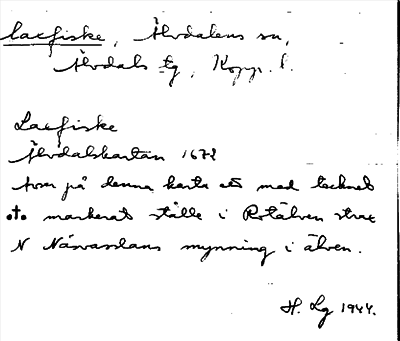 Laxfiske, Älvdalens sn,
Älvdals tg, Kopp. l.
Laxfiske
Älvdalskartan 1672
som på denna karta ett med tecknet
.†. markerat ställe i Rotälven strax
N Näsvasslans mynning i älven.
H. Lg 1944.